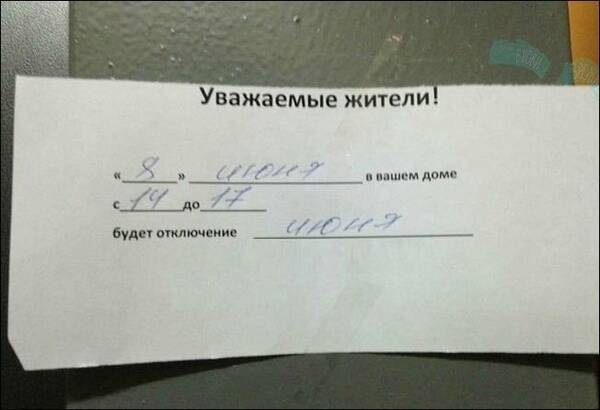 Уважаемые жители!
« 8 » июня в вашем доме
с 14 до 17
будет отключение июня